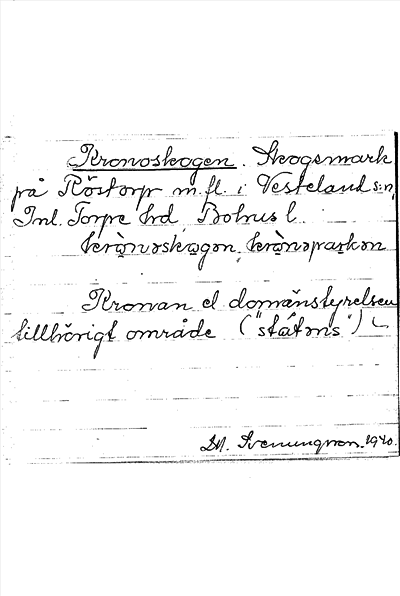 Kronoskogen. Skogsmark
på Röstorp m.fl. i Vesteland s:n,
Inl. Torpe hd, Bohus l.
krònoskogən, krònəparkən
Kronan el domänstyrelsen
tillhörigt område ("státəns")
M. Svenungsson. 1940.